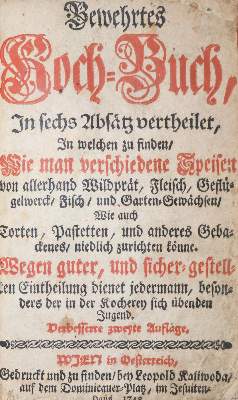 Bewehrtes
Koch-Buch,
In sechs Absätz vertheilet,
In welchen zu finden/
Wie man verschiedene Speisen
von allerhand Wildprät, Fleisch, Geflü-
gelwerck/ Fisch/ und Garten-Gewächsen/
Wie auch
Torten, Pastetten, und anderes Geba-
ckenes, niedlich zurichten könne.
Wegen guter, und sicher-gestell-
ten Eintheilung dienet jedermann, beson-
ders der in der Kocherey sich übenden
Jugend.
Verbesserte zweyte Auflage.
WIEN in Oesterreich,
Gedruckt und zu finden/ bey Leopold Kaliwoda/
auf dem Dominicaner-Platz, im Jesuiten-